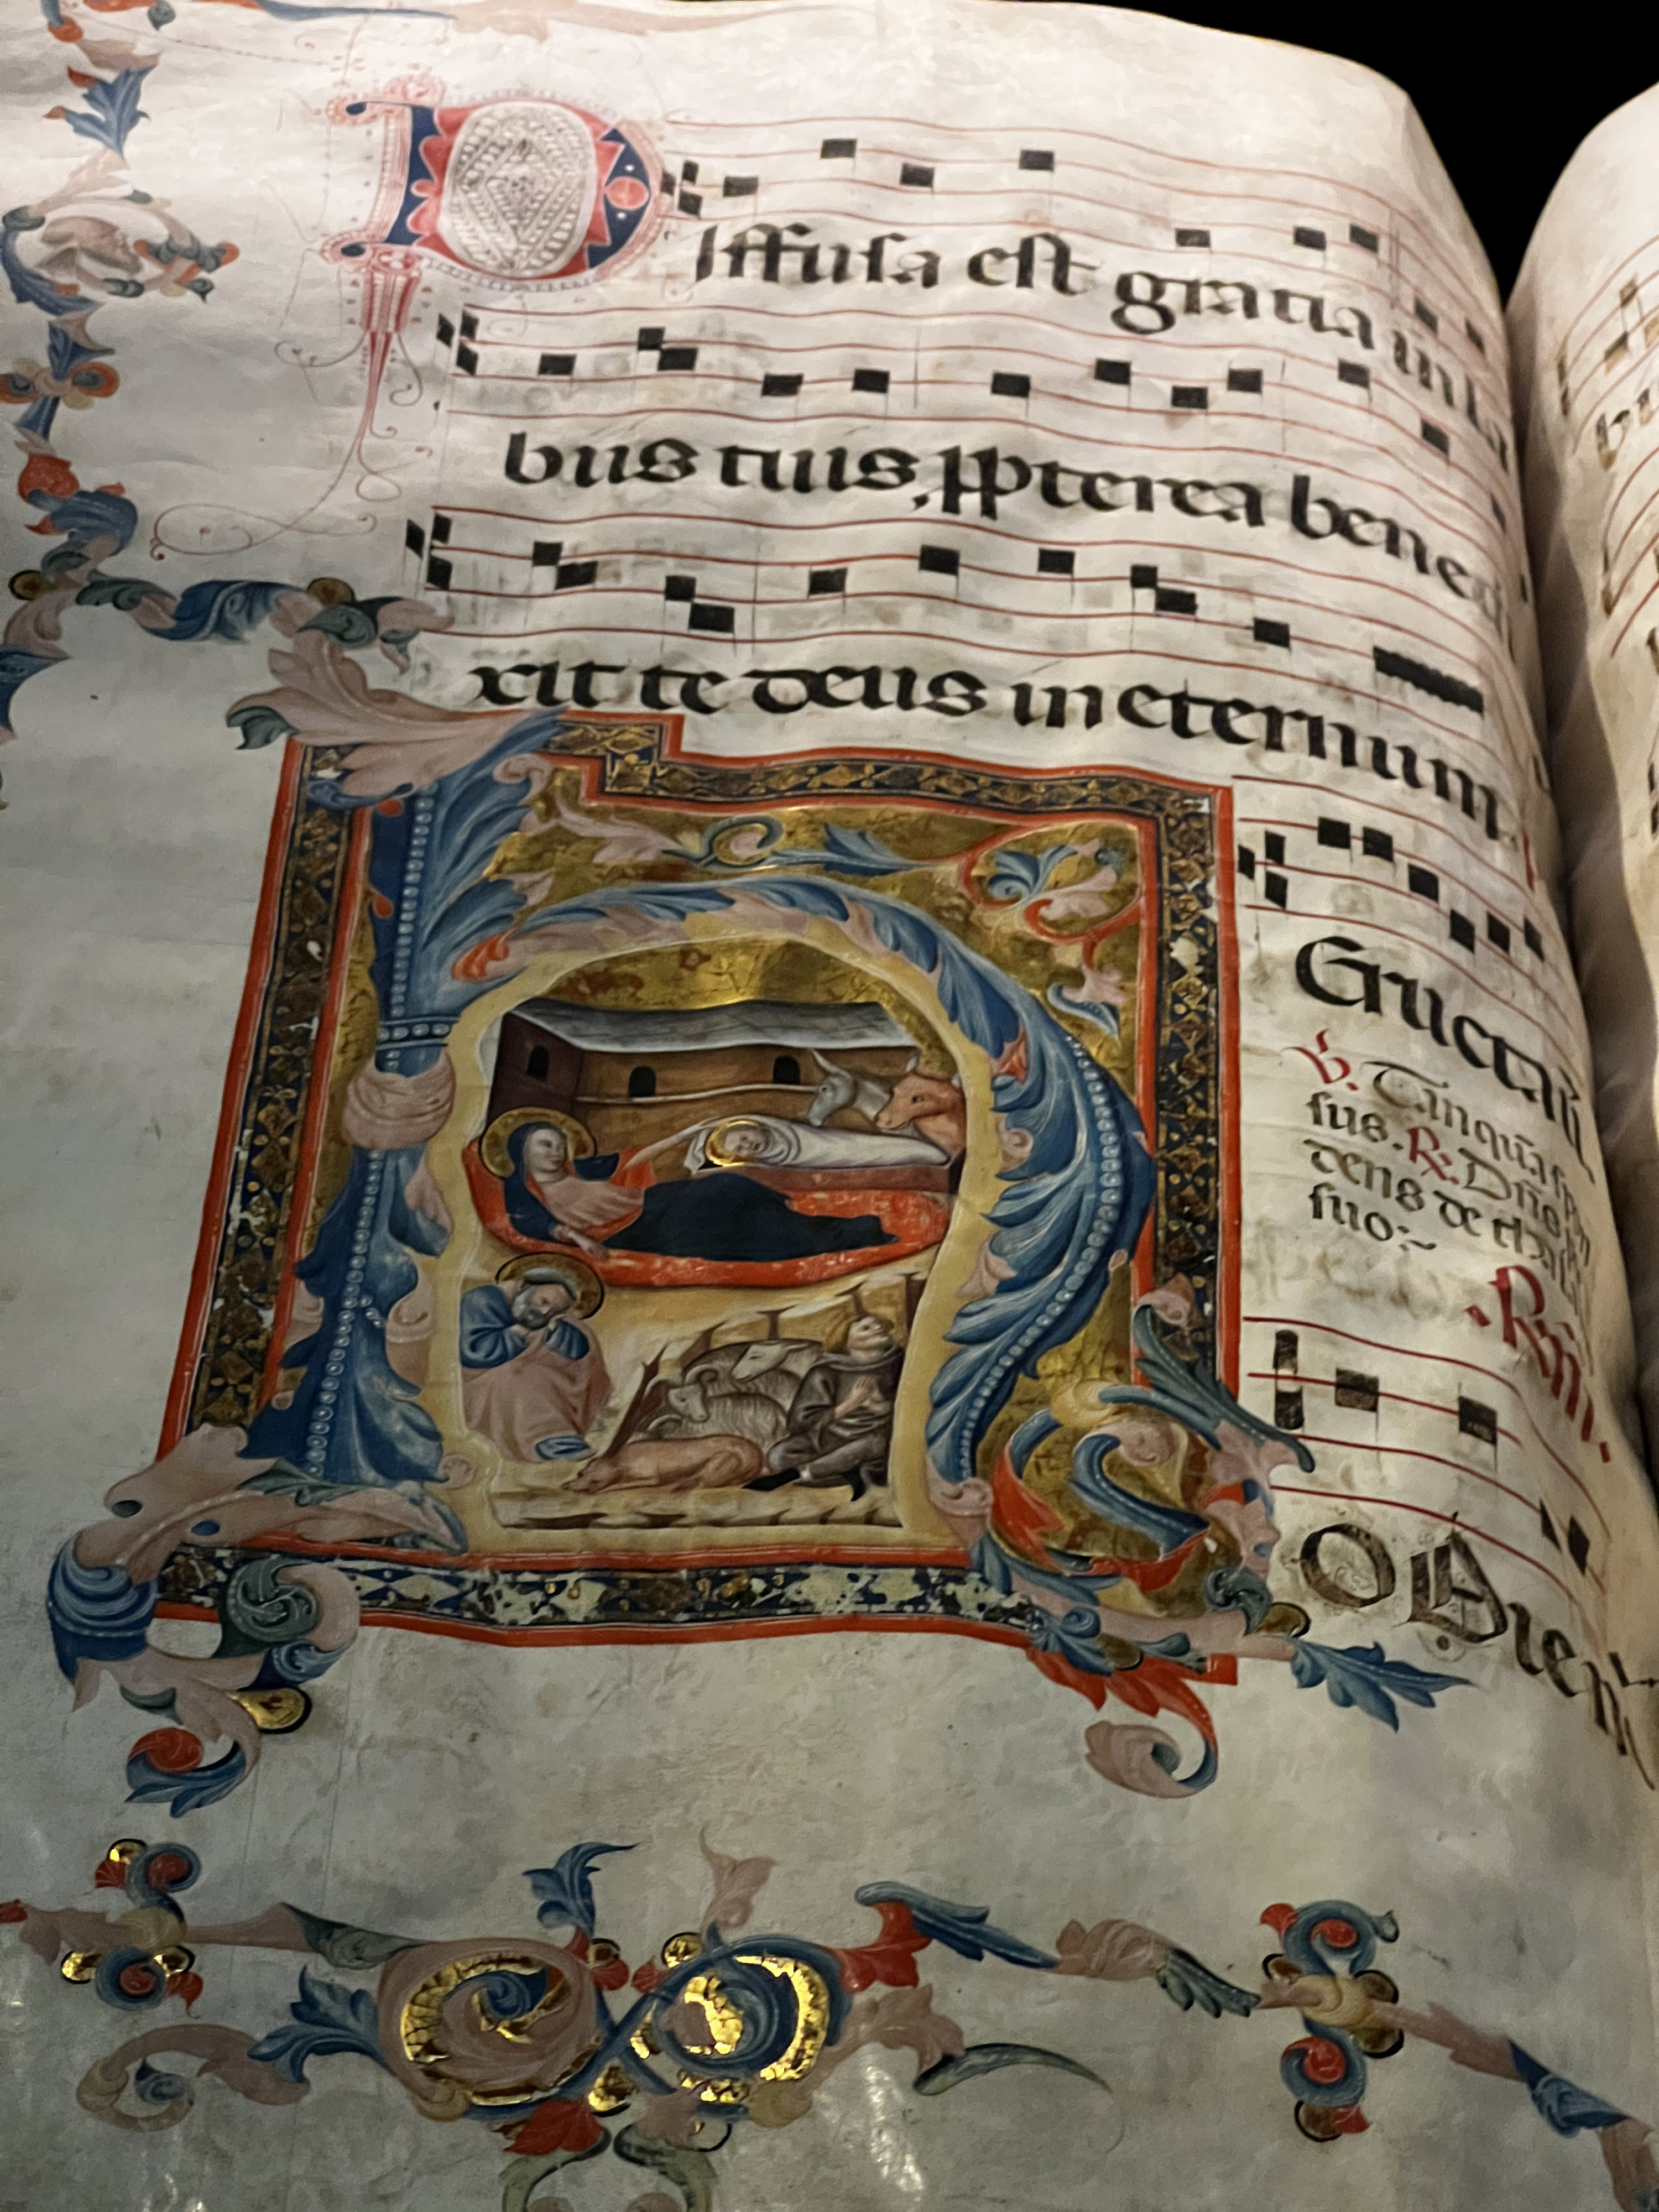 Diffusa est gratia in la
bus tuis, ppterea bened
xit te deus in eternum.
Eructauit
V. Tanquā spon
sus. R. Dn̄s
dens de thal
suo:~
.Rm̄.
HODie